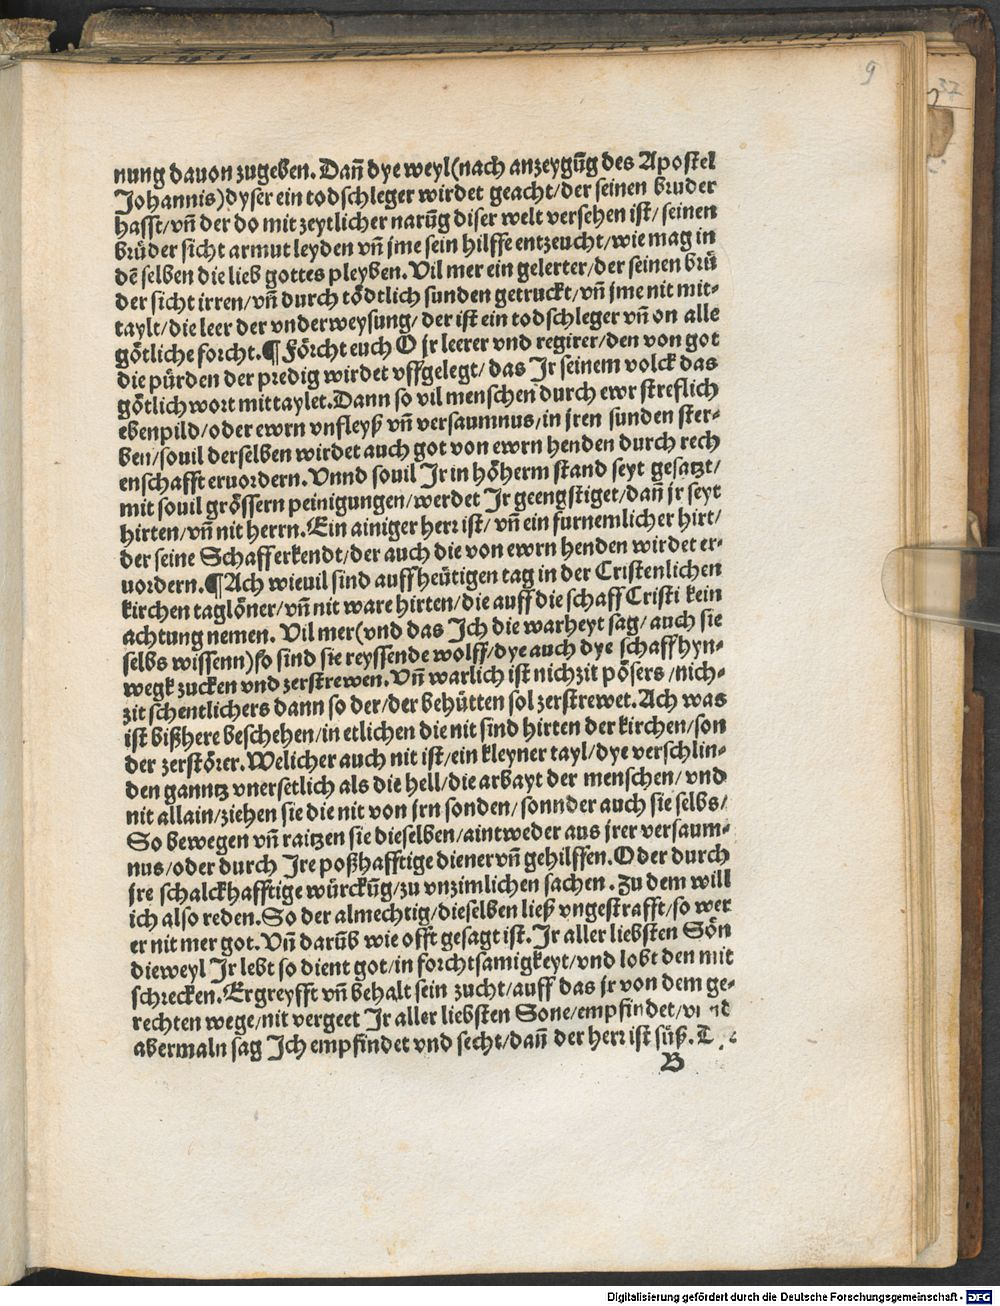 9
37
nung dauon zugeben. Dañ dye weyl(nach anzeygũg des Apostel
Johannis)dyser ein todschleger wirdet geacht/der seinen bruder
hasst/vñ der do mit zeytlicher narũg diser welt versehen ist/ seinen
brüder sicht armut leyden vñ jme sein hilffe entzeucht/wie mag in
dē selben die lieb gottes pleyben. Vil mer ein gelerter/der seinen brü
der sicht irren/vñ durch tödtlich sunden getruckt/vñ jme nit mit-
taylt/die leer der vnderweysung/ der ist ein todschleger vñ on alle
götliche forcht.¶ Förcht euch O jr leerer vnd regirer/den von got
die pürden der predig wirdet vffgelegt/ das Jr seinem volck das
götlich wort mittaylet.Dann so vil menschen durch ewr streflich
ebenpild/oder ewrn vnfleyß vñ versaumnus/in jren sunden ster-
ben/souil derselben wirdet auch got von ewrn henden durch rech
enschafft eruordern. Vnnd souil Jr in höherm stand seyt gesatzt/
mit souil grössern peinigungen/werdet Jr geengstiget/dañ jr seyt
hirten/vñ nit herrn.Ein ainiger herr ist/ vñ ein furnemlicher hirt/
der seine Schaff erkendt/der auch die von ewrn henden wirdet er-
uordern.¶Ach wieuil sind auff heütigen tag in der Cristenlichen
kirchen taglöner/vñ nit ware hirten/die auff die schaff Cristi kein
achtung nemen. Vil mer(vnd das Ich die warheyt sag/ auch sie
selbs wissenn)so sind sie reyssende wolff/dye auch dye schaff hyn-
wegk zucken vnd zerstrewen. Vñ warlich ist nichzit pösers /nich-
zit schentlichers dann so der/der behütten sol zerstrewet. Ach was
ist bißhere beschehen/in etlichen die nit sind hirten der kirchen/son
der zerstörer. Welicher auch nit ist/ein kleyner tayl/dye verschlin-
den ganntz vnersetlich als die hell/die arbayt der menschen/ vnd
nit allain/ziehen sie die nit von jrn sonden/ sonnder auch sie selbs/
So bewegen vñ raitzen sie dieselben/aintweder aus jrer versaum-
nus/oder durch Jre poßhafftige diener vñ gehilffen. Oder durch
jre schalckhafftige würckũg/zu vnzimlichen sachen . Zu dem will
ich also reden.So der almechtig/dieselben ließ vngestrafft/so wer
er nit mer got. Vñ darũb wie offt gesagt ist. Jr aller liebsten Sön
dieweyl Jr lebt so dient got/in forchtsamigkeyt/vnd lobt den mit
schrecken.Ergreyfft vñ behalt sein zucht/auff das jr von dem ge-
rechten wege/nit vergeet Jr aller liebsten Sone/empfindet/
abermaln sag Ich empfindet vnd secht/dañ der herr ist süß.
B
Digitalisierung gefördert durch die Deutsche Forschungsgemeinschaft - DFG